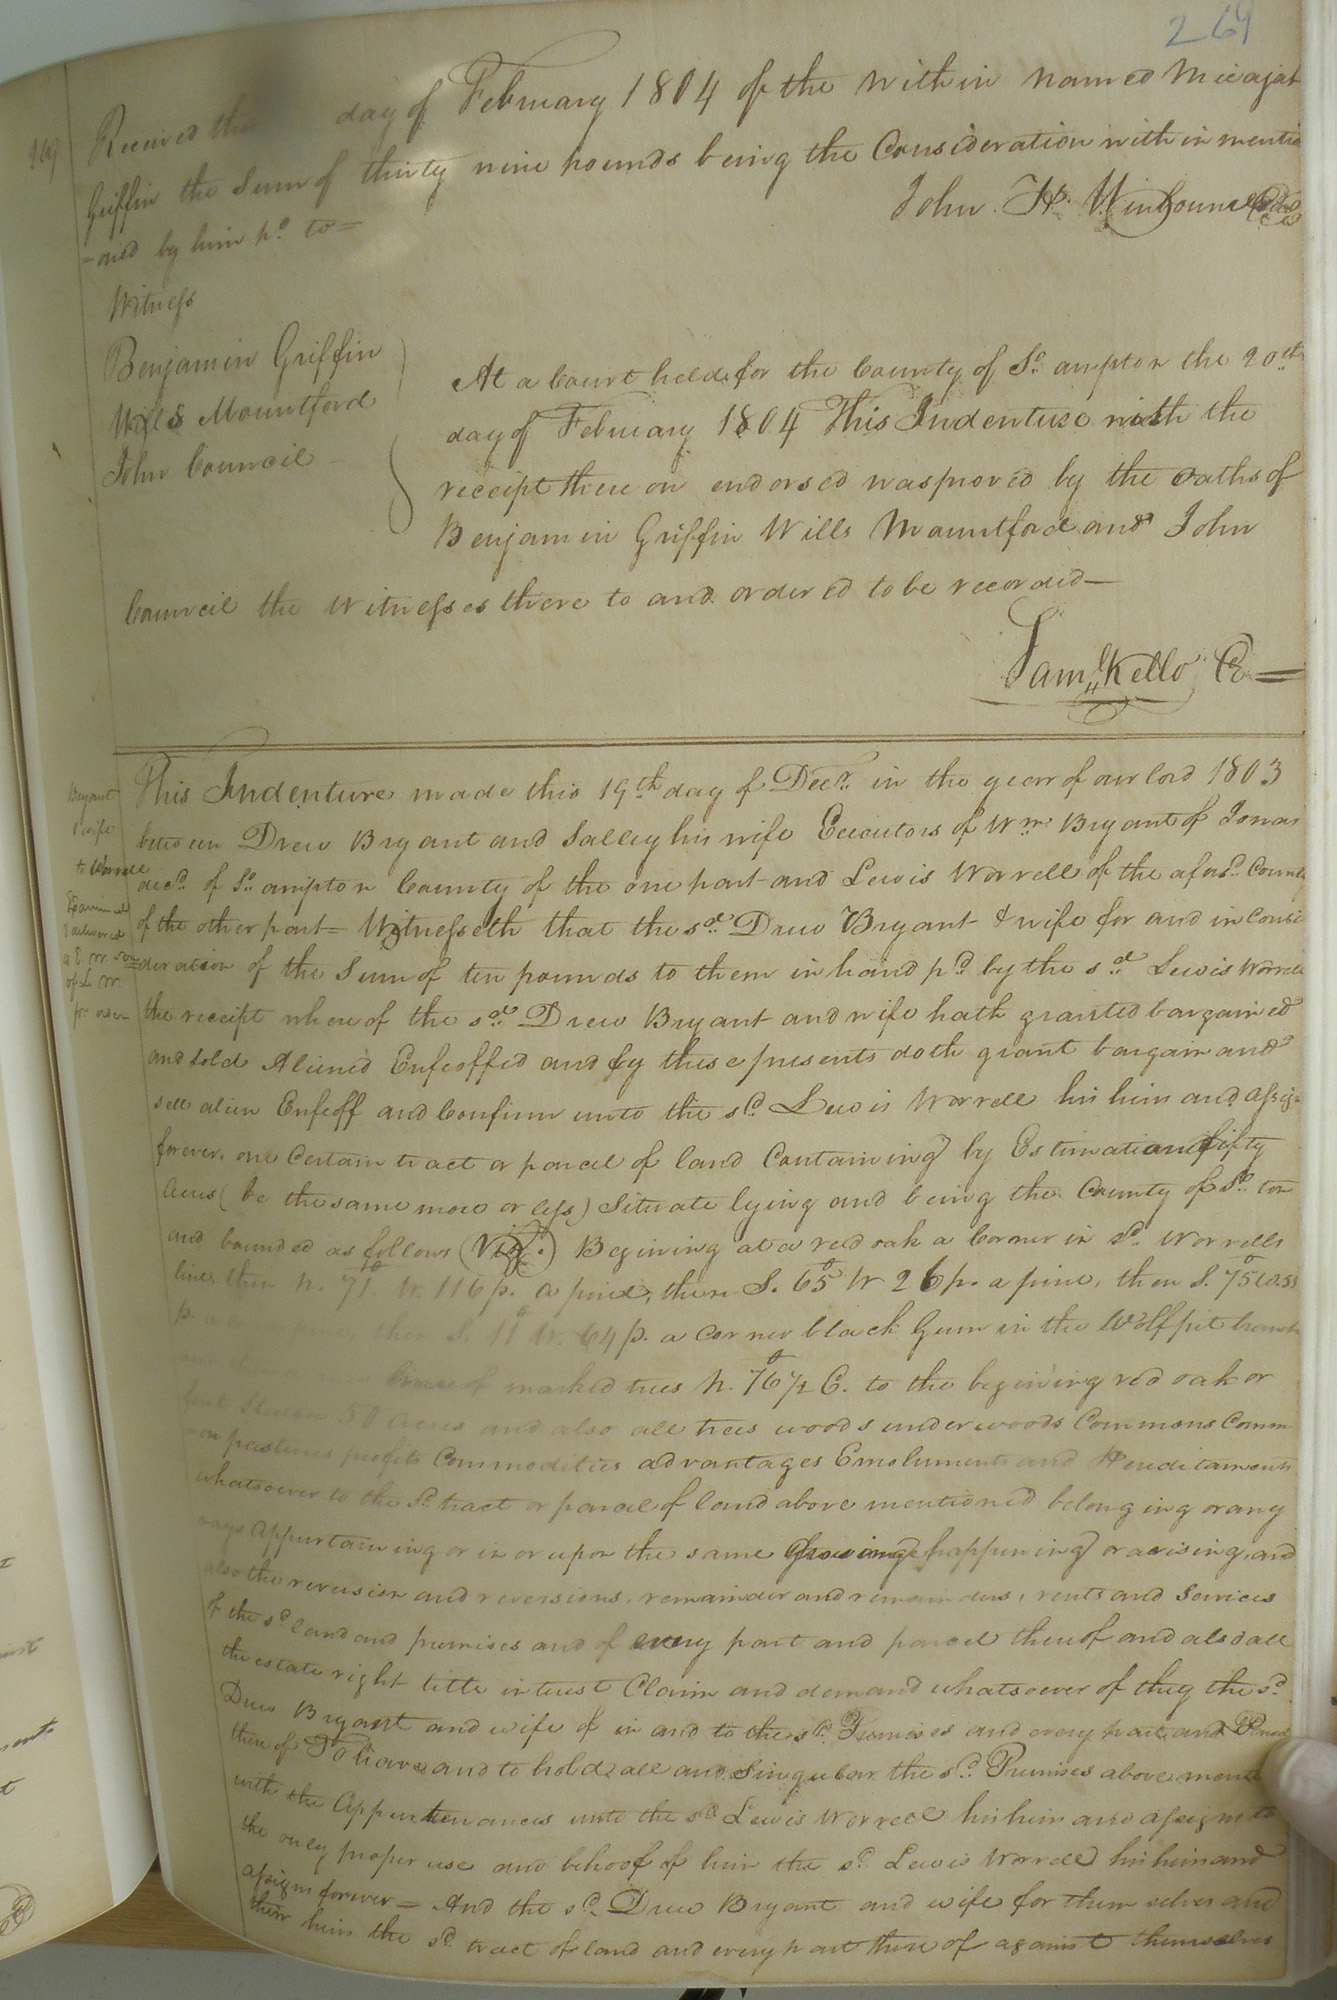 269
Received this day of February 1804 of the within named Micajah
Griffin the Sum of thirty nine pounds being the Consideration within mentio
=oned by him pd. to=
John H. Winbourne
Witness
Benjamin Griffin
Wills Mountford
John Council
At a Court held for the County of So. ampton the 20th
day of February 1804 This Indenture with the
receipt there on endorsed was proved by the oaths of
Benjamin Griffin Wills Mountford and John
Council the Witnesses there to and ordered to be recorded—
Saml. Kello Cl=
Bryant
& wife
to Worrell
Examined
& delivered
to E W son
of L W
pr order
This Indenture made this 19th day of Decr. in the year of our lord 1803
between Drew Bryant and Salley his wife Executors of Wm. Bryant of Jonas
decd. of So. ampton County of the one part and Lewis Worrell of the afresd. County
of the other part= Witnesseth that the sd. Drew Bryant & wife for and in Consi
=deration of the Sum of ten pounds to them in hand pd by the sd Lewis Worrell
the receipt where of the sd. Drew Bryant and wife hath granted bargained
and sold Aliened Enfeoffed and by these presents doth grant bargain and
sell alien Enfeoff and Confirm unto the sd. Lewis Worrell his heirs and assigs
forever. one Certain tract or parcel of land Containing by Estimation fifty
Acres (be the same more or less) Situate lying and being the County of So. ton
and bounded as follows (Viz.) Begining at a red oak a Corner in sd. Worrells
line, then N. 71° W. 116 p. a pine, then S. 65° W 26 p. a pine, then S. 75°
p. a then S. 11° W. 64 p. a corner black Gum in the Wolfpit branch
line of marked trees N. 76° 1/2 E. to the begining red oak or
50 Acres and also all trees woods underwoods Commons Comm
=on pastures profits Commodities advantages Emoluments and Hereditaments
whatsoever to the sd. tract or parcel of land above mentioned belonging or any
ways Appurtaining or in or upon the same Growing happening or arising, and
also the reversion and reversions, remainder and remainders, rents and Services
of the sd. land and premises and of every part and parcel thereof and also all
the estate right title interest Claim and demand whatsoever of they the sd.
Drew Bryant and wife of in and to the sd. Premises and every part and Parcel
there of To have and to hold all and Singular the sd. Premises above ment
with the Appurtenances unto the sd Lewis Worrell his heirs and assigns to
the only proper use and behoof of him the sd. Lewis Worrell his heirs and
assigns forever = And the sd. Drew Bryant and wife for them selves and
their heirs the sd. tract of land and every part there of against themselves